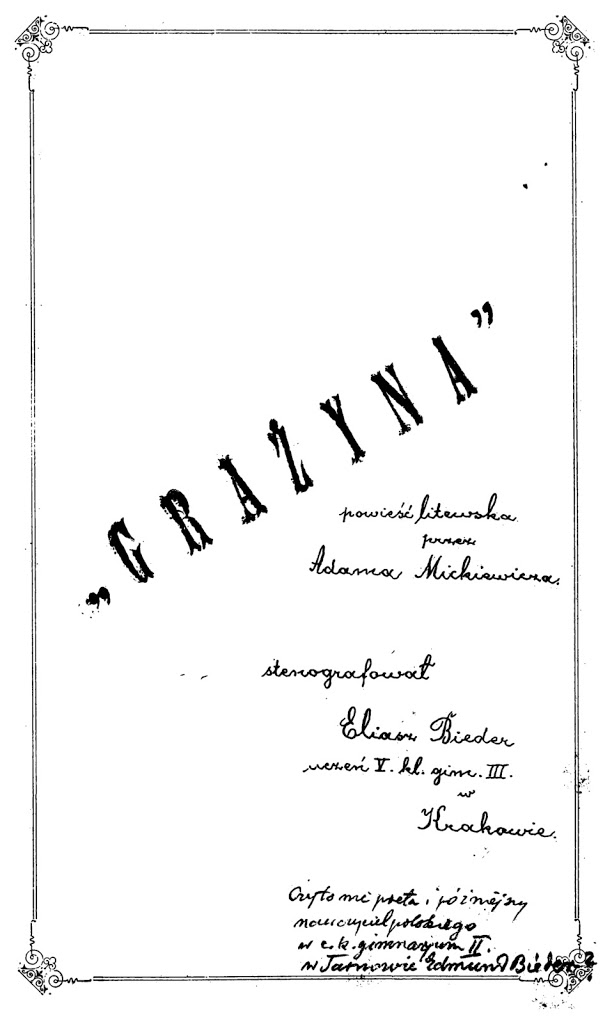 „GRAŻYNA”
powieść litewska
przez
Adama Mickiewicza.
stenografował
Eliasz Bieder
uczeń V. kl. gim. III.
w
Krakowie.
Czy to nie poeta i późniejszy
nauczyciel polskiego
w c. k. gimnazjum II.
w Tarnowie Edmund Bieder?